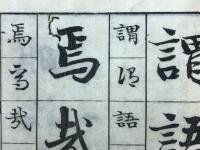 謂語
謂謂語
焉哉
焉焉哉